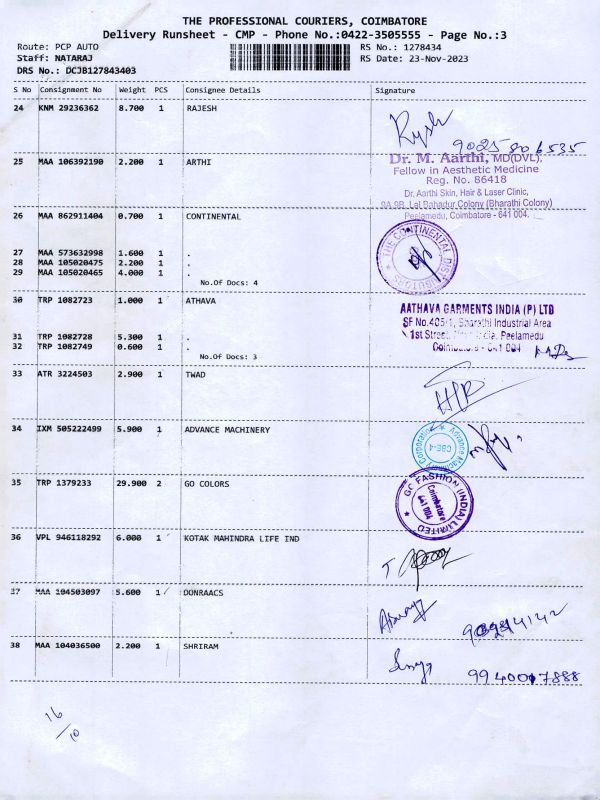 THE PROFESSIONAL COURIERS, COIMBATORE
Delivery Runsheet - CMP - Phone No.:0422-3505555 - Page No.:3
Route: PCP AUTO RS No.: 1278434
Staff: NATARAJ RS Date: 23-Nov-2023
DRS No.: DCJB127843403
S No Consignment No Weight PCS Consignee Details Signature
24 KNM 29236362 8.700 1 RAJESH
9025806535
25 MAA 106392190 2.200 1 ARTHI
Dr. M. Aarthi, MD(DVL),
Fellow in Aesthetic Medicine
Reg. No. 86418
Dr. Aarthi Skin, Hair & Laser Clinic,
9A 9B, Lal Bahadur Colony (Bharathi Colony)
Peelamedu, Coimbatore - 641 004.
26 MAA 862911404 0.700 1 CONTINENTAL
THE CONTINENTAL DISTRIBUTORS
27 MAA 573632998 1.600 1 .
28 MAA 105020475 2.200 1 .
29 MAA 105020465 4.000 1 .
No.Of Docs: 4
30 TRP 1082723 1.000 1 ATHAVA
AATHAVA GARMENTS INDIA (P) LTD
SF No.405/1, Bharathi Industrial Area
1st Street, Peelamedu
Coimbatore - 641 004
31 TRP 1082728 5.300 1 .
32 TRP 1082749 0.600 1 .
No.Of Docs: 3
33 ATR 3224503 2.900 1 TWAD
34 IXM 505222499 5.900 1 ADVANCE MACHINERY
Advance Machinery Corporation
CBE-4
35 TRP 1379233 29.900 2 GO COLORS
GO FASHION (INDIA) LIMITED
Coimbatore
641 004
36 VPL 946118292 6.000 1 KOTAK MAHINDRA LIFE IND
37 MAA 104503097 5.600 1 DONRAACS
38 MAA 104036500 2.200 1 SHRIRAM
9940017888
16/10